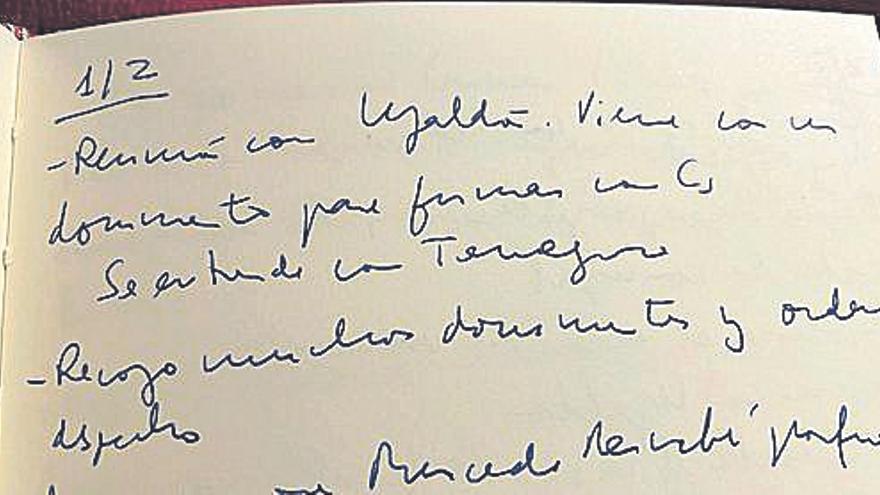 1/2
- Reunión con Ugalde. Viene con un
documento para firmar con Cs
Se entiende con Tenagure
- Recojo muchos documentos y orden
despacho
Mercedes